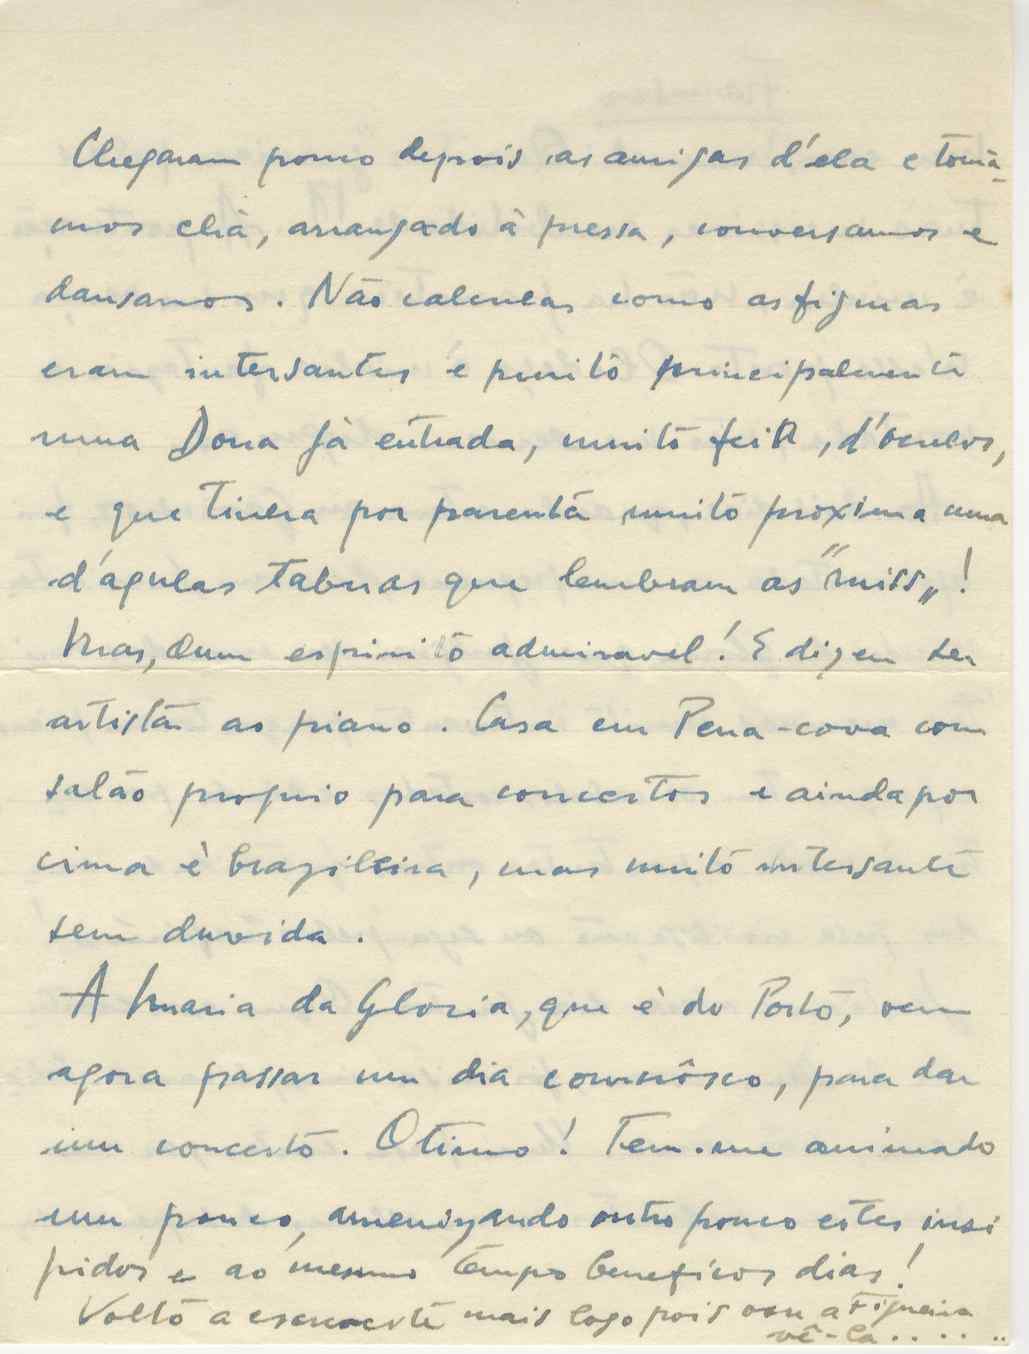 Chegaram pouco depois as amigas d'ela e tomá-
mos chá, arranjado à pressa, conversamos e
dansamos. Não calculas como as figuras
eram intersantes e muitò principalmente
uma Dona já entrada, muitò feia, d'òculos,
e que tivera por parentà muitò pròxima uma
d'águlas tabuas que lembram as "miss„!
Mas, dum espiritò admiravel! E dizem ser
artistà ao piano. Casa em Pena-cova com
salão proprio para concertos e ainda por
cima è brazileira, mas muitò intersante
sem duvida.
A Maria da Glòria, que è do Portò, vem
agora passar um dia connôsco, para dar
um concertò. Otimo! Tem-me animado
um pouco, amenizando outro pouco estes insi
pidos e ao mesmo tempo beneficos dias!
Voltò a escrevertè mais logo pois vou a Figueira
vê-la......